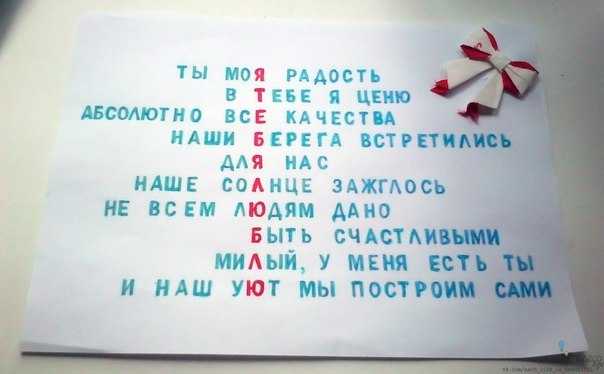 ТЫ МОЯ РАДОСТЬ
В ТЕБЕ Я ЦЕНЮ
АБСОЛЮТНО ВСЕ КАЧЕСТВА
НАШИ БЕРЕГА ВСТРЕТИЛИСЬ
ДЛЯ НАС
НАШЕ СОЛНЦЕ ЗАЖГЛОСЬ
НЕ ВСЕМ ЛЮДЯМ ДАНО
БЫТЬ СЧАСТЛИВЫМИ
МИЛЫЙ, У МЕНЯ ЕСТЬ ТЫ
И НАШ УЮТ МЫ ПОСТРОИМ САМИ